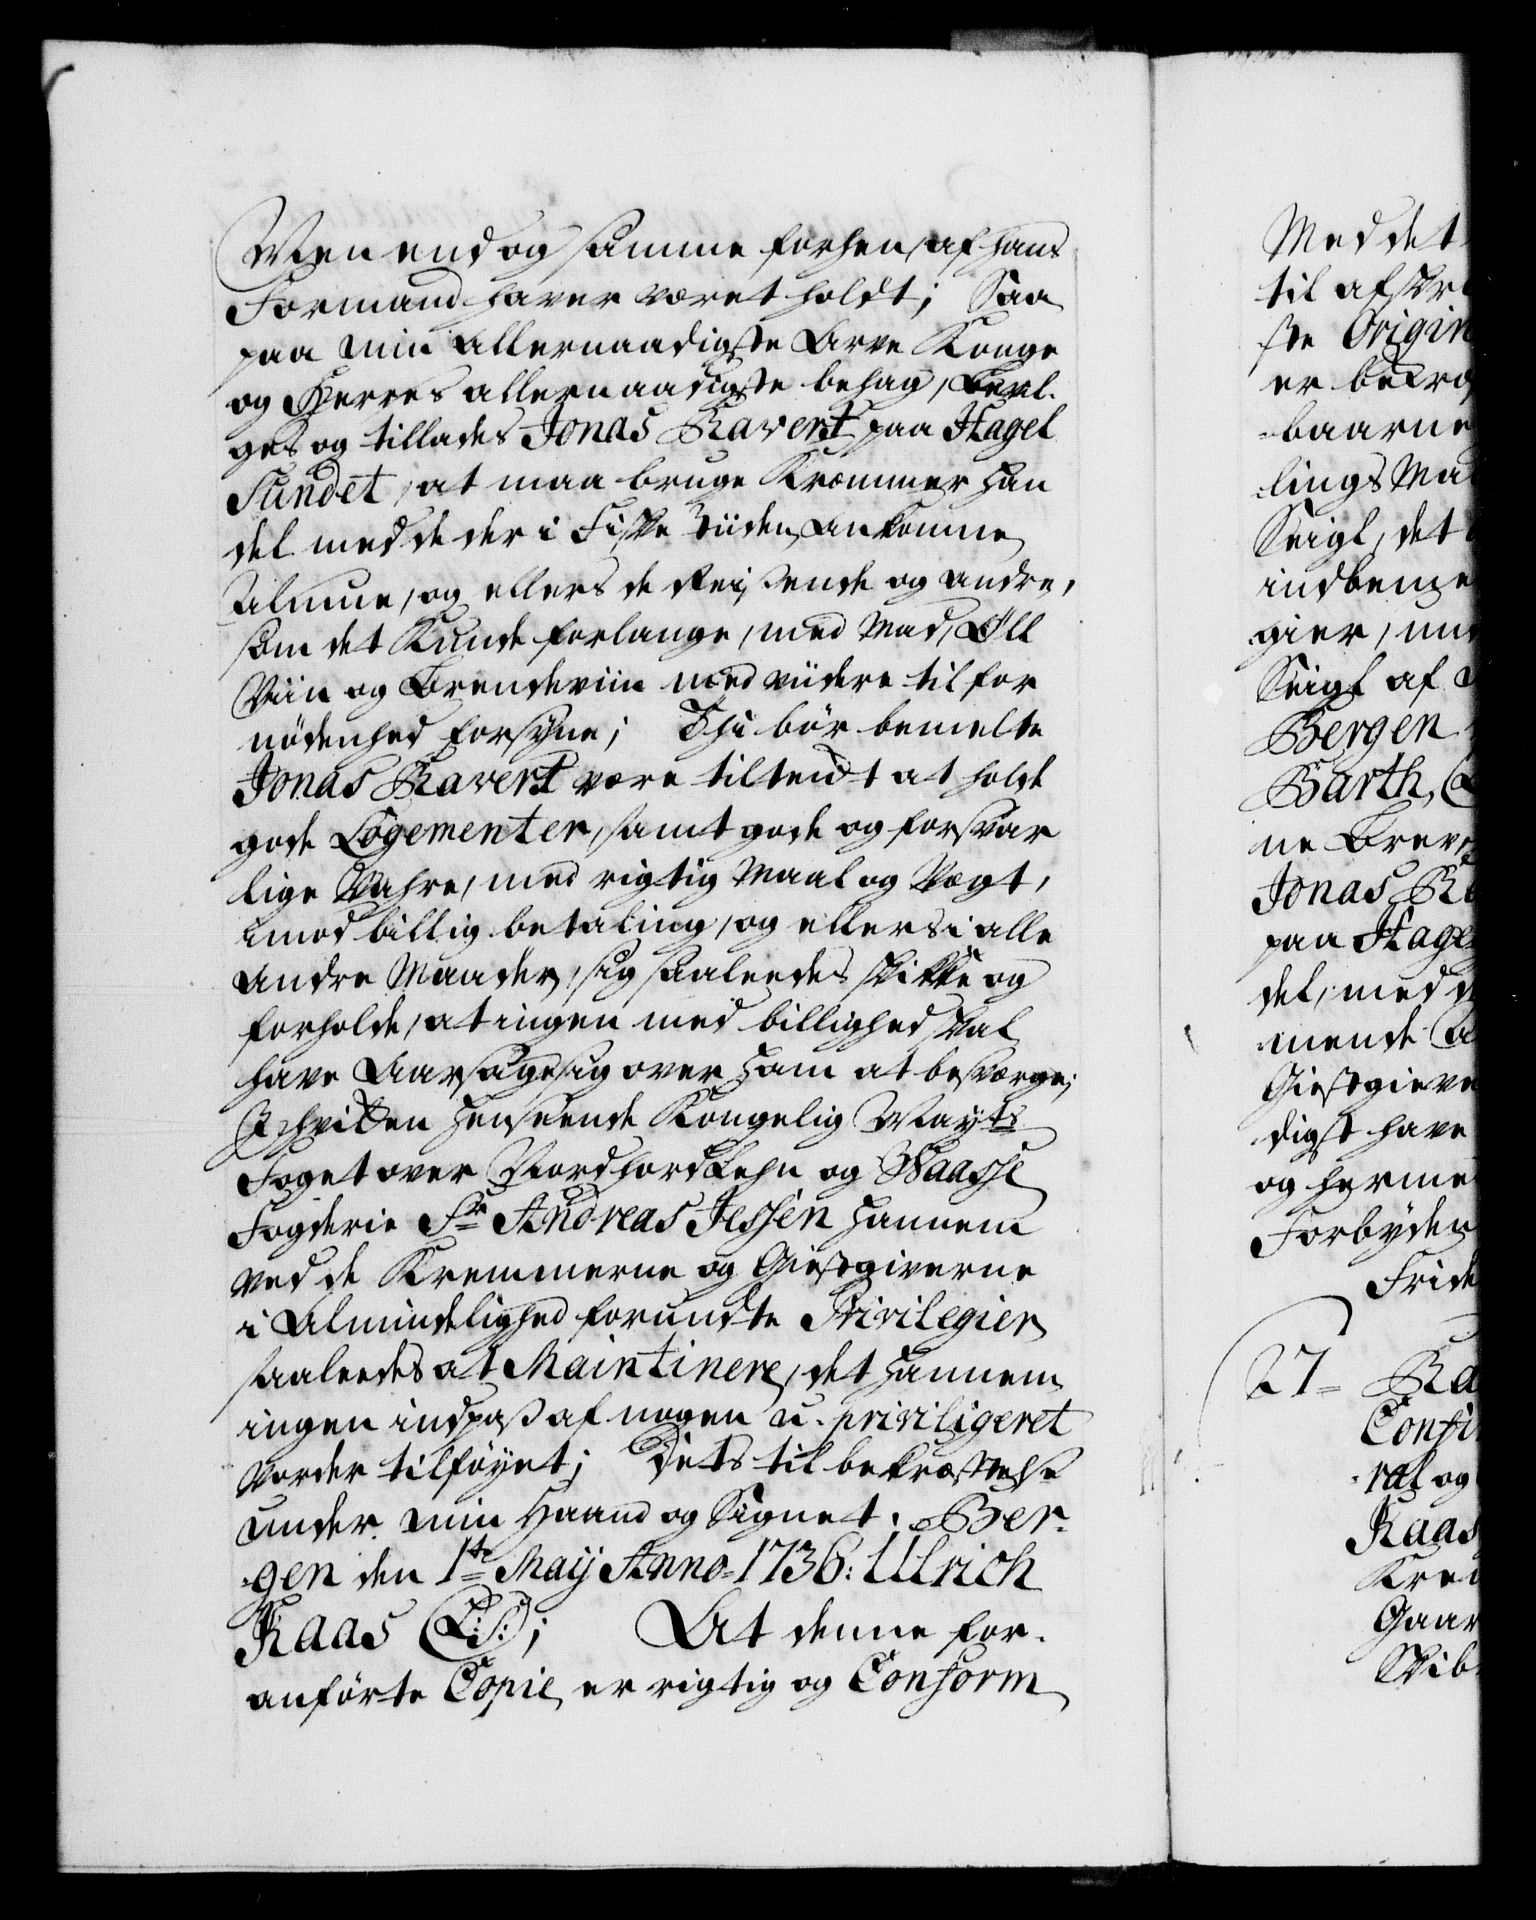 Men endog samme forhen af hans
Formand haver været holdt; Saa
paa min Allernaadigste Arve Konge
og Herres allernaadigste behag, bevil-
ges og tillades Jonas Ravert paa Hagel
Sundet, at maa bruge Kræmmer Han
del med de der i Fiske Tiiden Ankomne
Almue, og ellers de Reisende og andre,
som det Kunde forlange, med Mad, Øll
Viin og Brendeviin med viidere til for
nödenhed forsyne; Thi bör bemelte
Jonas Ravert være tiltenkt at holde
gode Logementer, samt gode og forsvar
lige Vahre, med rigtig Maal og Vegt,
imod billig betaling, og ellers i alle
andre Maader, sig saaleedes skikke og
forholde, at ingen med billighed skal
have Aarsage sig over Ham at besværge;
I hvilken Henseende Kongelig Mayts
Foget over Nordhordlehn og Waasse
Fogderie Sr Andreas Jessen Hannem
ved de Kremmerne og Giestgiverne
i Almindelighed forundte Privilegier
saaleedes at Maintinere, det Hannem
ingen indpas af nogen u-priviligeret
vorder tilföyet; Dets til bekræftelse
under min Haand og Signet. Ber-
gen den 1te May Anno 1736: Ulrich
Kaas (L:S:); At denne for-
anförte Copie er rigtig og Conform
Med det
til afskr
ste Origin
er bekræ
baarne
lings Ma
Seigl, det
indbeme
gier, und
Seigl af
Bergen
Barth,
ne Brev
Jonas R
paa Hage
del, med d
mende A
Giestgieve
digst have
og herme
Forbyden
Fride
27 Ra
Confi
ral og
Kaas
Kre
Gaar
Skib